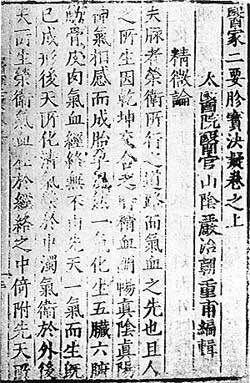 醫家二要脉寶決疑卷之上
太醫院醫官山陰嚴治朝重甫編輯
精微論
夫脉者榮衛所行之道路而氣血之先也且人
所生因乾坤交合之精血調暢真陰真陽
神氣相感而成胎孕一氣化生五臟六腑
筋骨皮肉氣血經絡無不由先天一氣而生既
已成形後天所化清氣於中濁氣衛於外後
天所生榮衛氣血在於經絡之中倚附先天所